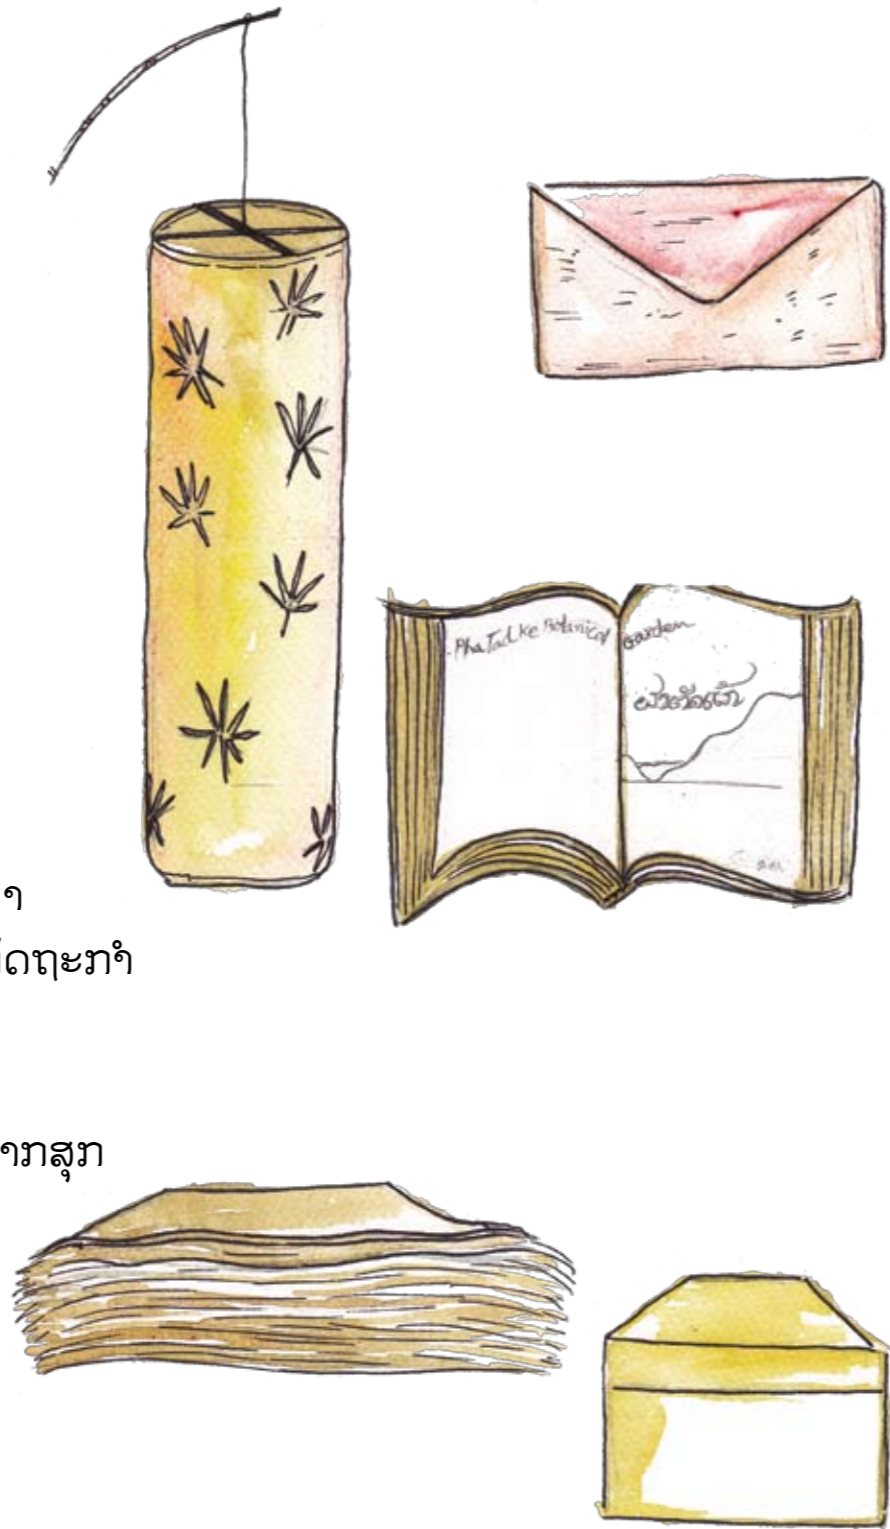 Pha Tad Ke Botanical garden
ຜາຕັດແກ້
າ
ັດຖະກຳ
າກສຸກ